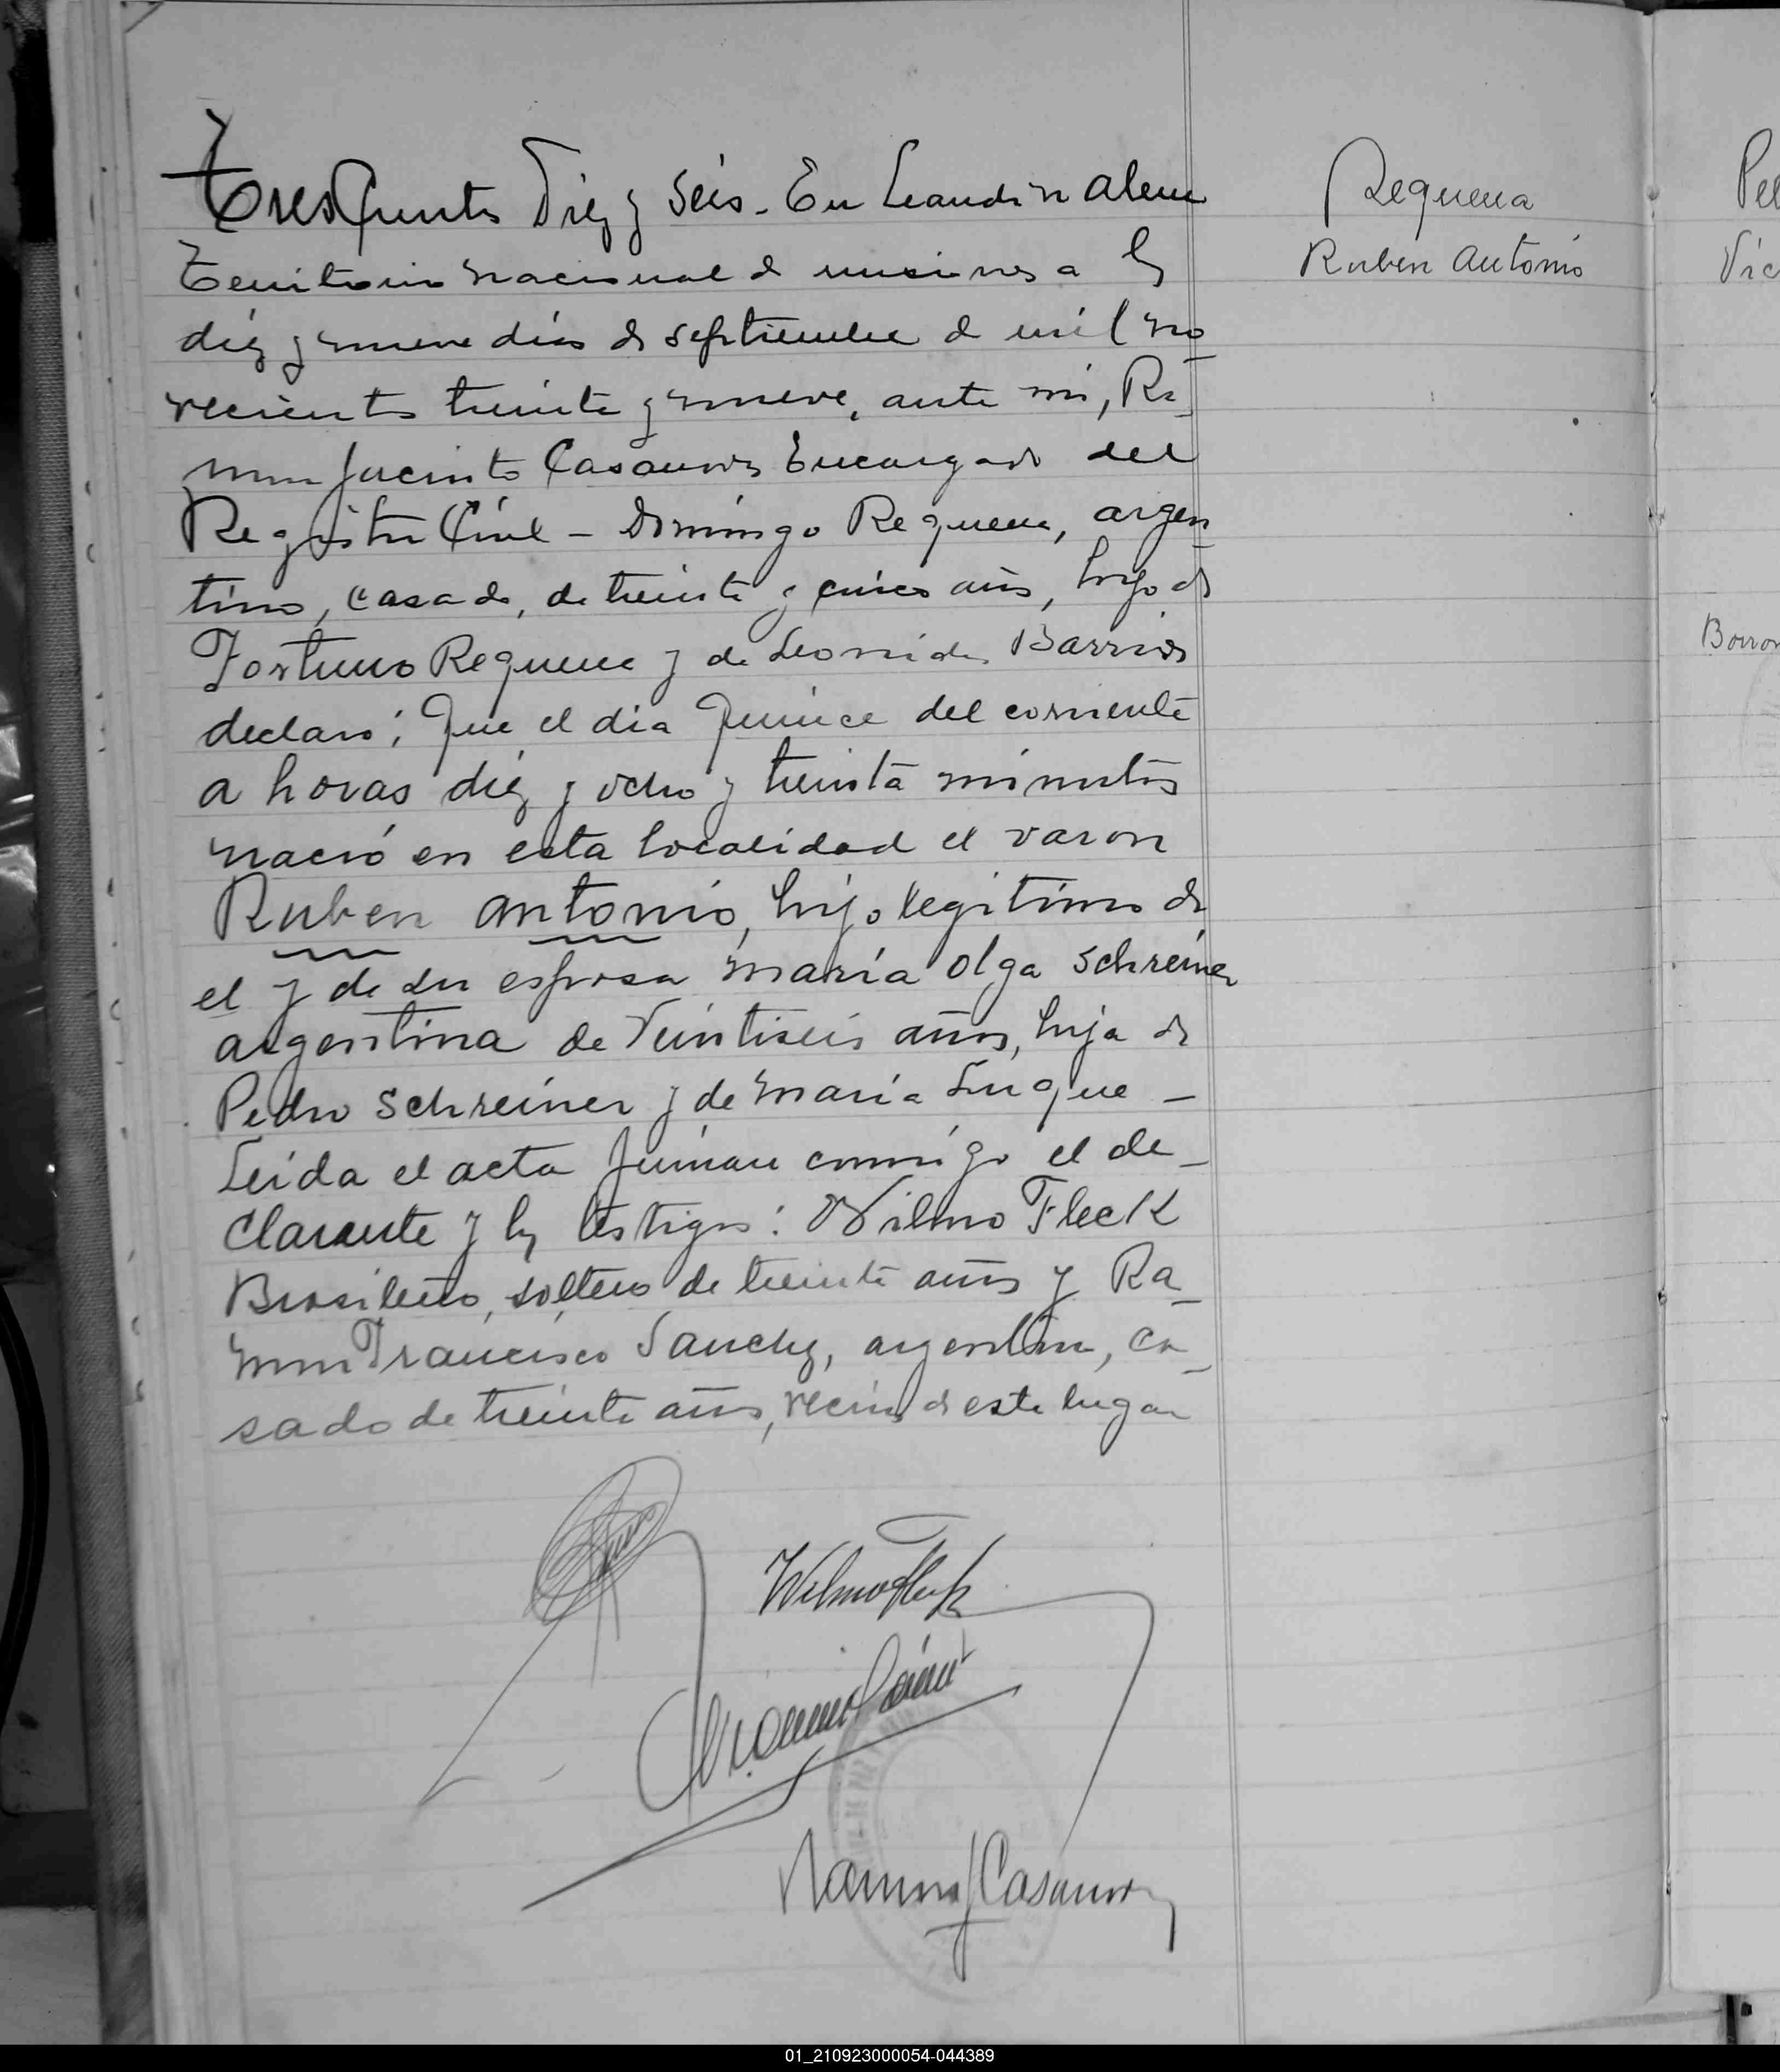 Trescientos Diez y Seis. En Leandro N Alem
Territorio Nacional de Misiones a los
diez y nueve dias de septiembre de mil no
vecientos treinta y nueve, ante mi, Ra
mon Jacinto Casanova Encargado del
Registro Civil - Domingo Requena, argen
tino, casado, de treinta y cinco años, hijo de
Fortuno Requena y de Leonides Barrios
declaró: Que el dia quince del corriente
a horas diez y ocho y treinta minutos
nació en esta localidad el varon
Ruben Antonio, hijo legitimo de
el y de su esposa Maria Olga Schreiner
argentina de veintiseis años, hija de
Pedro Schreiner y de Maria Luque -
Leida el acta firman conmigo el de_
clarante y los testigos: Wilmo Fleck
Brasileño, soltero de treinta años y Ra_
mon Francisco Sanchez, argentino, ca_
sado de treinta años, vecinos de este lugar
Wilmo Fleck
Ramon J Casanova
Requena
Ruben Antonio
Pe
Vic
Borro
01_210923000054-044389